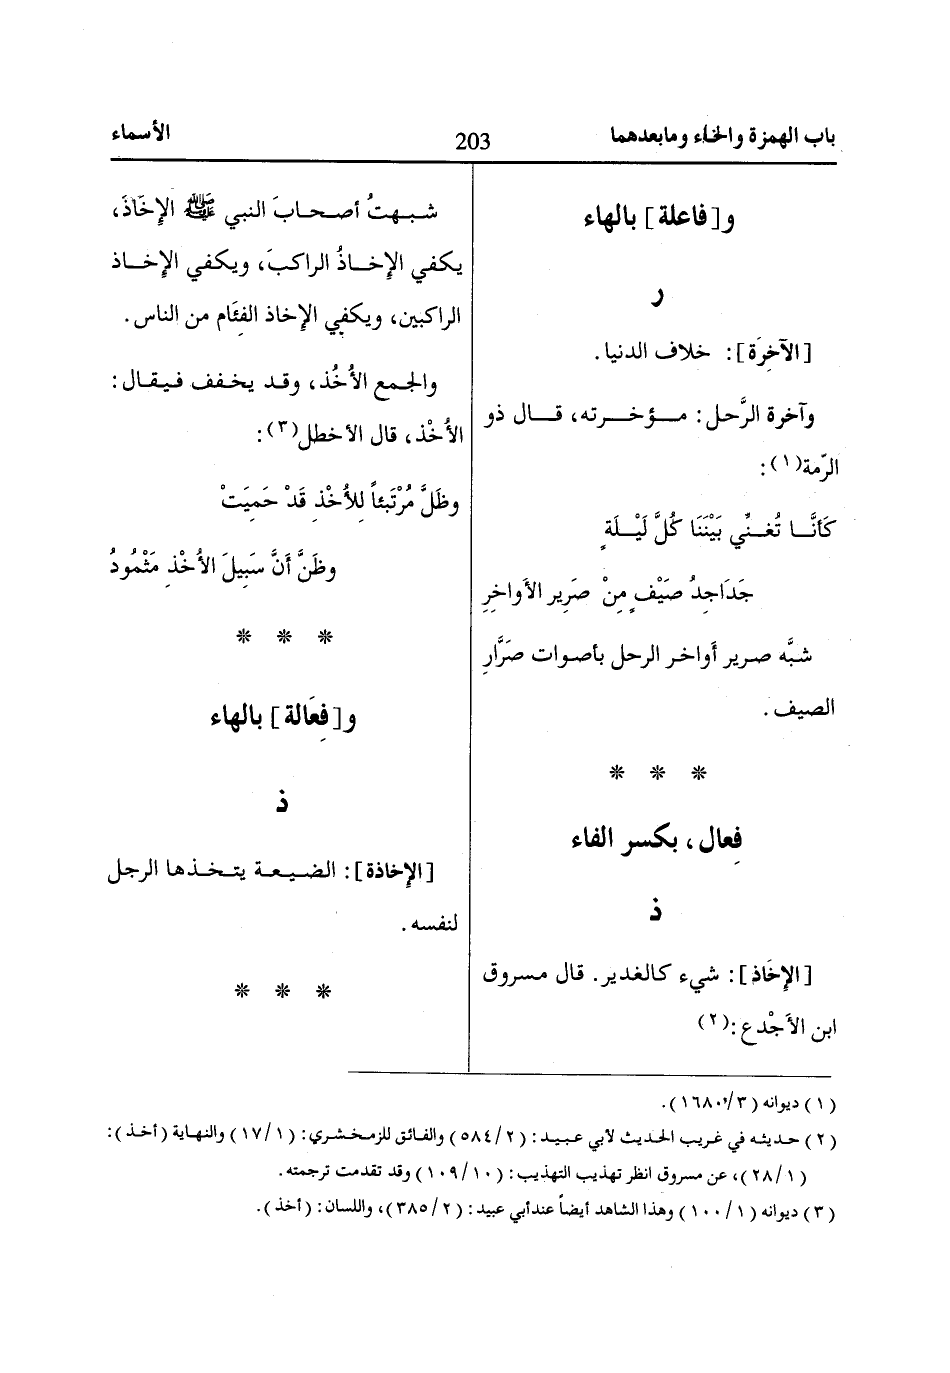 باب الهمزة والخاء ومابعدهما
203
الأسماء
و[فاعلة] بالهاء
ر
[الآخِرَة]: خلاف الدنيا.
وآخرة الرَّحل: مــؤخــرته، قــال ذو
الرّمة(١):
كَأنَّــا تُغَــنِّي بَيْنَنَا كُلَّ لَيْــلَةٍ
جَدَاجِدُ صَيْفٍ مِنْ صَرِير الأَواخرِ
شبَّه صرير أواخر الرحل بأصوات صَرَّارِ
الصيف.
* * *
فِعال، بكسر الفاء
ذ
[الإِخَاذ]: شيء كالغدير. قال مسروق
ابن الأَجْدع:(٢)
شبهتُ أصحابَ النبي ﷺ الإِخَاذَ،
يكفي الإِخــاذُ الراكبَ، ويكفي الإِخــاذ
الراكبين، ويكفي الإِخاذ الفئَام من الناس.
والجمع الأُخُذ، وقد يخفف فيقال:
الأُخْذ، قال الأخطل(٣):
وظَلَّ مُرْتَبئاً للأُخْذِ قَدْ حَمِيَتْ
وظَنَّ أَنَّ سَبِيلَ الأُخْذِ مَثْمُودُ
* * *
و[فِعَالة] بالهاء
ذ
[الإِخاذة]: الضيعة يتخذها الرجل
لنفسه.
* * *
(١) ديوانه (٣/١٦٨٠).
(٢) حديثه في غريب الحديث لأبي عبيد: (٢/٥٨٤) والفائق للزمخشري: (١/١٧) والنهاية (أخذ):
(١/٢٨)، عن مسروق انظر تهذيب التهذيب: (١٠/١٠٩) وقد تقدمت ترجمته.
(٣) ديوانه (١/١٠٠) وهذا الشاهد أيضاً عند أبي عبيد: (٢/٣٨٥)، واللسان: (أخذ).